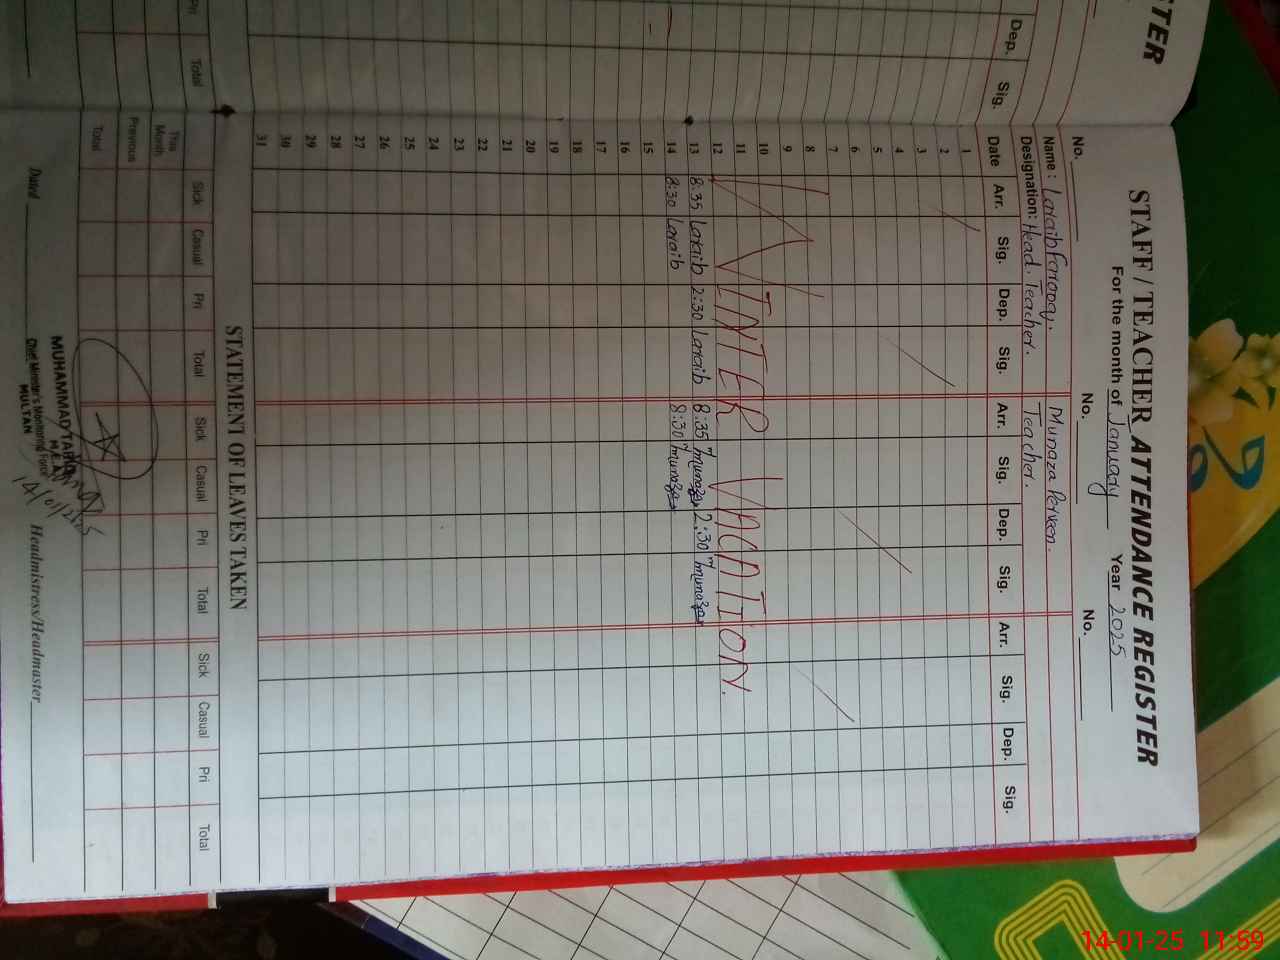 TER
Dep. Sig.
Pri Total
STAFF / TEACHER ATTENDANCE REGISTER
For the month of January Year 2025
No. No. No.
Name : Laraib Munaza Perveen.
Designation: Head. Teacher. Teacher.
Date Arr. Sig. Dep. Sig. Arr. Sig. Dep. Sig. Arr. Sig. Dep. Sig.
1
2
3
4
5
6
7
8
9
10
11
WINTER VACATION.
12
13 8:35 Laraib 2:30 Laraib 8:35 munaza 2:30 munaza
14 8:30 Laraib 8:30 munaza
15
16
17
18
19
20
21
22
23
24
25
26
27
28
29
30
31
STATEMENT OF LEAVES TAKEN
Sick Casual Pri Total Sick Casual Pri Total Sick Casual Pri Total
This Month
Previous
Total
MUHAMMAD TARIQ
M.E.A
Chief Minister's Monitoring Force
MULTAN
14/01/2025
Dated Headmistress/Headmaster
14-01-25 11:59